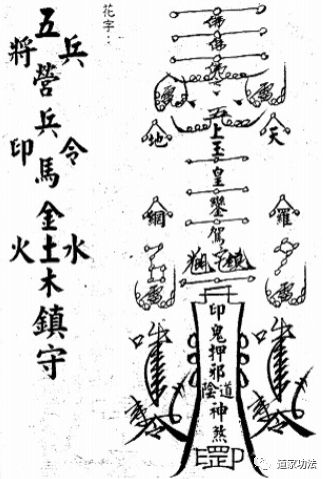 花字：
兵 五 將
營
兵
令 馬 印
金
水 土 火
木
鎮
守
佛
佛
佛
雷 雷
天 上 地
玉
皇
羅 鑾 網
駕
雷 雷
印
鬼
押
邪
道 陰
神
煞
道家功法